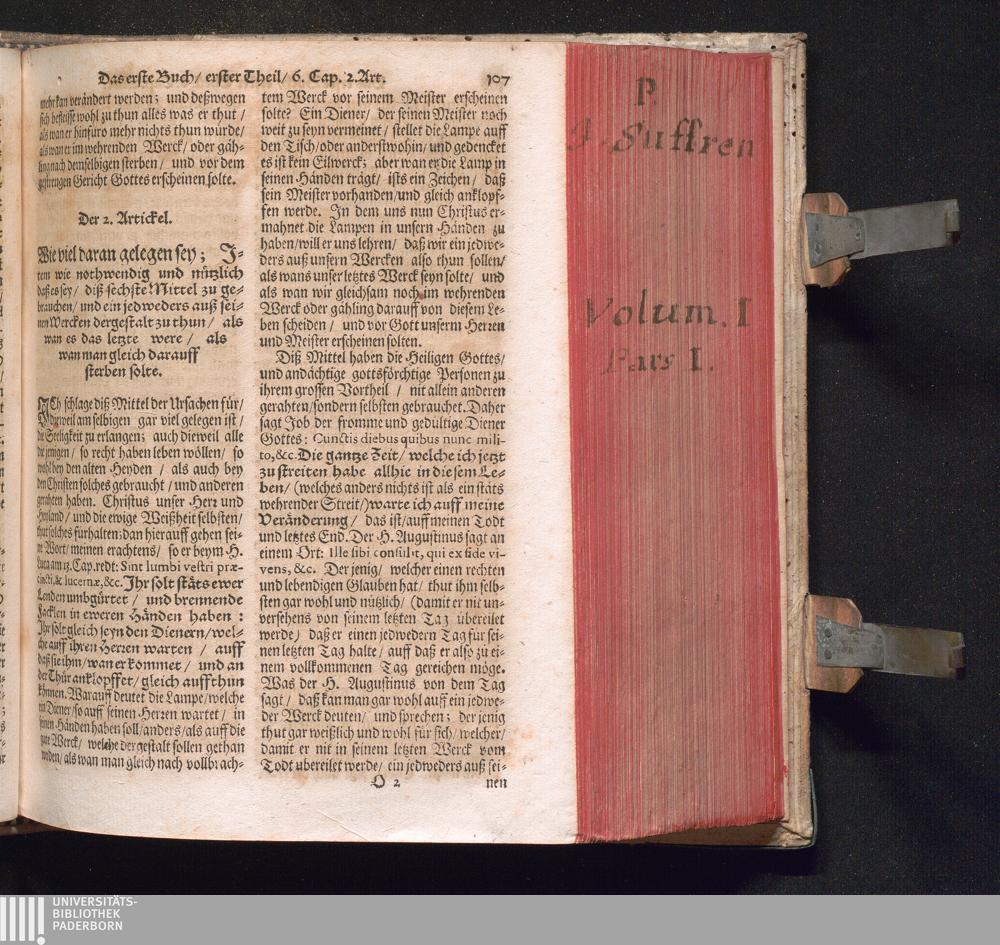 Das erste Buch/ erster Theil/ 6. Cap. 2. Art. 107
mehr kan verändert werden; und deßwegen
sich befleisse wohl zu thun alles was er thut /
als wan er hinfüro mehr nichts thun würde/
als wan er im wehrenden Werck/ oder gäh-
ling nach demselbigen sterben/ und vor dem
gestrengen Gericht Gottes erscheinen solte.
Der 2. Artickel.
Wie viel daran gelegen sey; J-
tem wie nothwendig und nützlich
daß es sey/ diß sechste Mittel zu ge-
brauchen/ und ein jedweders auß sei-
nen Wercken dergestalt zu thun/ als
wan es das letzte were/ als
wan man gleich darauff
sterben solte.
JCh schlage diß Mittel der Ursachen für/
dieweil am selbigen gar viel gelegen ist/
die Seeligkeit zu erlangen; auch dieweil alle
die jenigen/ so recht haben leben wöllen/ so
wohl bey den alten Heyden/ als auch bey
den Christen solches gebraucht/ und anderen
gerahten haben. Christus unser Herr und
Heyland/ und die ewige Weißheit selbsten/
thut solches fürhalten; dan hierauff gehen sei-
ne Wort/ meinen erachtens/ so er beym H.
Luca am 12. Cap. redt: Sint lumbi vestri præ-
cincti, & lucernæ, &c. Ihr solt stäts ewer
Lenden umbgürtet/ und brennende
Facklen in eweren Händen haben:
Ihr solt gleich seyn den Dienern/ wel-
che auff ihren Herren warten/ auff
daß sie ihm/ wan er kommet/ und an
der Thür anklopffet/ gleich auffthun
können. Warauff deutet die Lampe/ welche
ein Diener/ so auff seinen Herren wartet/ in
seinen Händen haben soll/ anders/ als auff die
gute Werck/ welche dergestalt sollen gethan
werden/ als wan man gleich nach vollbrach-
tem Werck vor seinem Meister erscheinen
solte? Ein Diener/ der seinen Meister noch
weit zu seyn vermeinet/ stellet die Lampe auff
den Tisch/ oder anderstwohin/ und gedencket
es ist kein Eilwerck; aber wan er die Lamp in
seinen Händen trägt/ ists ein Zeichen/ daß
sein Meister vorhanden/ und gleich anklopf-
fen werde. Jn dem uns nun Christus er-
mahnet die Lampen in unsern Händen zu
haben/ will er uns lehren/ daß wir ein jedwe-
ders auß unsern Wercken also thun sollen/
als wans unser letztes Werck seyn solte/ und
als wan wir gleichsam noch im wehrenden
Werck oder gähling darauff von diesem Le-
ben scheiden/ und vor Gott unserm Herren
und Meister erscheinen solten.
Diß Mittel haben die Heiligen Gottes/
und andächtige gottsförchtige Personen zu
ihrem grossen Vortheil/ nit allein anderen
gerahten/ sondern selbsten gebrauchet. Daher
sagt Job der fromme und gedültige Diener
Gottes: Cunctis diebus quibus nunc mili-
to, &c. Die gantze Zeit/ welche ich jetzt
zu streiten habe allhie in diesem Le-
ben/ (welches anders nichts ist als ein stäts
wehrender Streit/) warte ich auff meine
Veränderung/ das ist/ auff meinen Todt
und letztes End. Der H. Augustinus sagt an
einem Ort: Ille sibi consulit, qui ex fide vi-
vens, &c. Der jenig/ welcher einen rechten
und lebendigen Glauben hat/ thut ihm selb-
sten gar wohl und nützlich/ (damit er nit un-
versehens von seinem letzten Tag übereilet
werde) daß er einen jedwedern Tag für sei-
nen letzten Tag halte/ auff daß er also zu ei-
nem vollkommenen Tag gereichen möge.
Was der H. Augustinus von dem Tag
sagt/ daß kan man gar wohl auff ein jedwe-
der Werck deuten/ und sprechen; der jenig
thut gar weißlich und wohl für sich/ welcher/
damit er nit in seinem letzten Werck vom
Todt ubereilet werde/ ein jedweders auß sei-
O 2 nen
P.
Suffren
Volum. I
Pars I.
UNIVERSITÄTS-
BIBLIOTHEK
PADERBORN